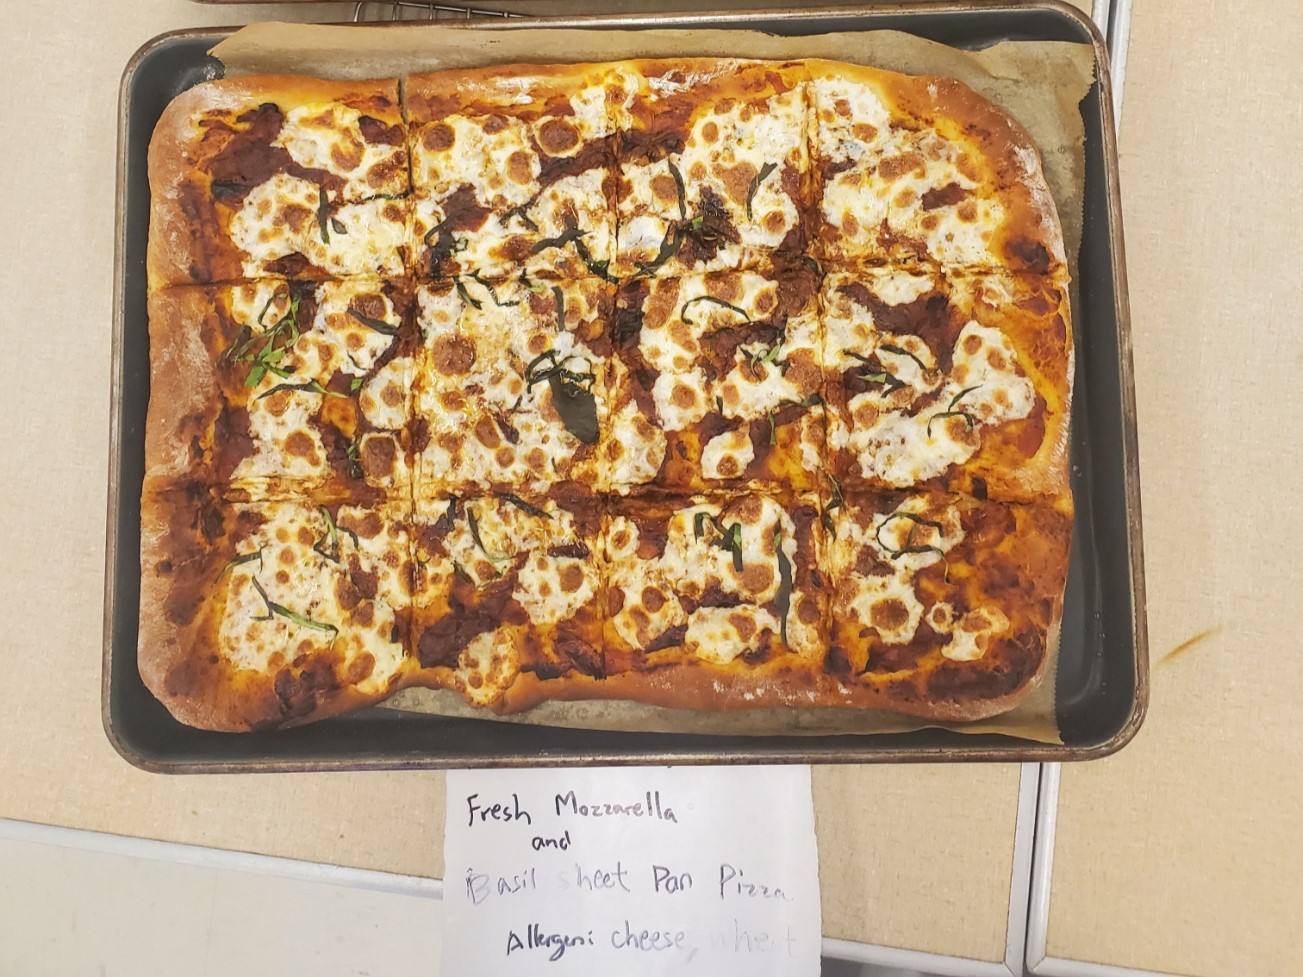 Fresh Mozzarella
and
Basil Sheet Pan Pizza
Allergens: cheese, wheat